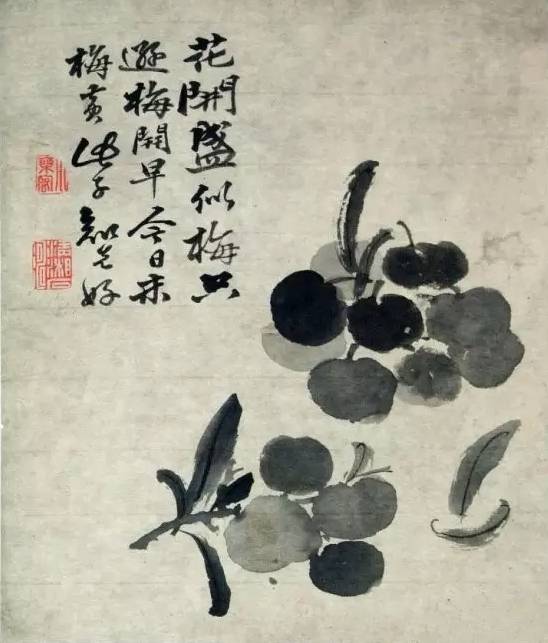 花開盛似梅只
遜梅開早今日未
梅黄子好